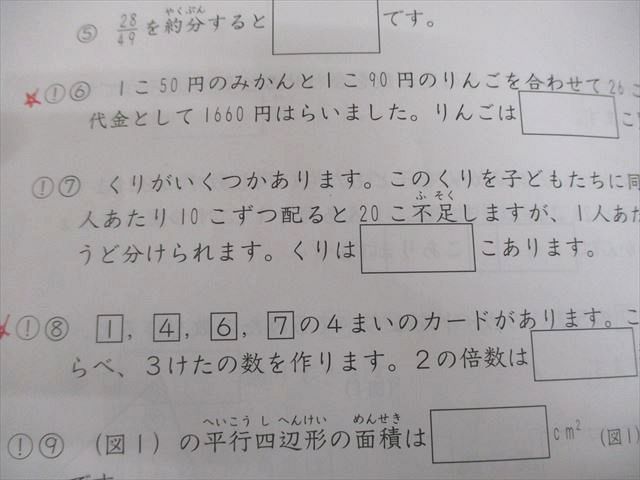 ⑤ 28/49 を約分すると　　です。
やくぶん
①⑥ 1こ50円のみかんと1こ90円のりんごを合わせて26こ
代金として1660円はらいました。りんごは　　こ
①⑦ くりがいくつかあります。このくりを子どもたちに同
人あたり10こずつ配ると20こ不足しますが、1人あた
ふそく
うど分けられます。くりは　　こあります。
①⑧ 1, 4, 6, 7の4まいのカードがあります。こ
らべ、3けたの数を作ります。2の倍数は
①⑨ (図1)の平行四辺形の面積は　　cm² (図1)
へいこうしへんけい めんせき
です